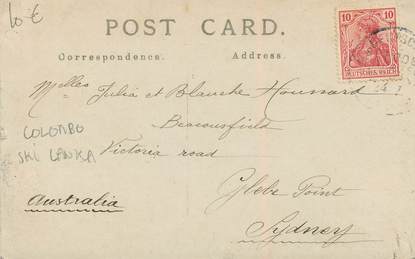 10 €
POST CARD.
Correspondence.
Address.
10 10
DEUTSCHES REICH
Melles Julia et Blanche Houssard
Beaconsfield
COLOMBO
SRI LANKA
Victoria road
Australia
Glebe Point
Sydney